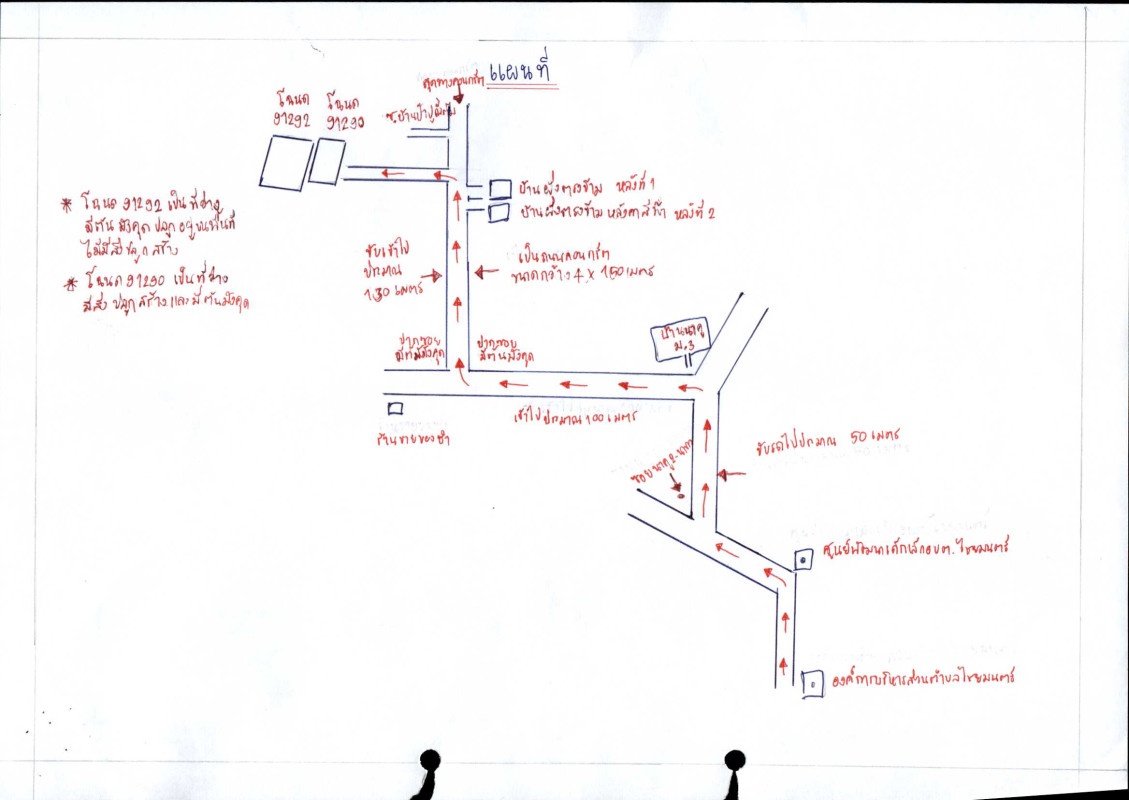 แผนที่
สุดทางคอนกรีต
โฉนด
91292
โฉนด
91290
ซ.บ้านป้าปู
* โฉนด 91292 เป็นที่ว่าง
มีต้นมังคุด ปลูกอยู่บนพื้นที่
ไม่มีสิ่งปลูกสร้าง
* โฉนด 91290 เป็นที่ว่าง
มีสิ่งปลูกสร้าง และมีต้นมังคุด
บ้านฝั่งตรงข้าม หลังที่ 1
บ้านฝั่งตรงข้าม หลังที่ 2
ขับเข้าไป
ประมาณ
130 เมตร
เป็นถนนคอนกรีต
ขนาดกว้าง 4 x 150 เมตร
ปากซอย
มีต้นมังคุด
ปากซอย
มีต้นมังคุด
บ้านนาคู
ม.3
เข้าไปประมาณ 100 เมตร
ร้านขายของชำ
ขับรถไปประมาณ 50 เมตร
ซอยนาคู2-นากา
ศูนย์พัฒนาเด็กเล็กอบต.ไชยมนตรี
องค์การบริหารส่วนตำบลไชยมนตรี